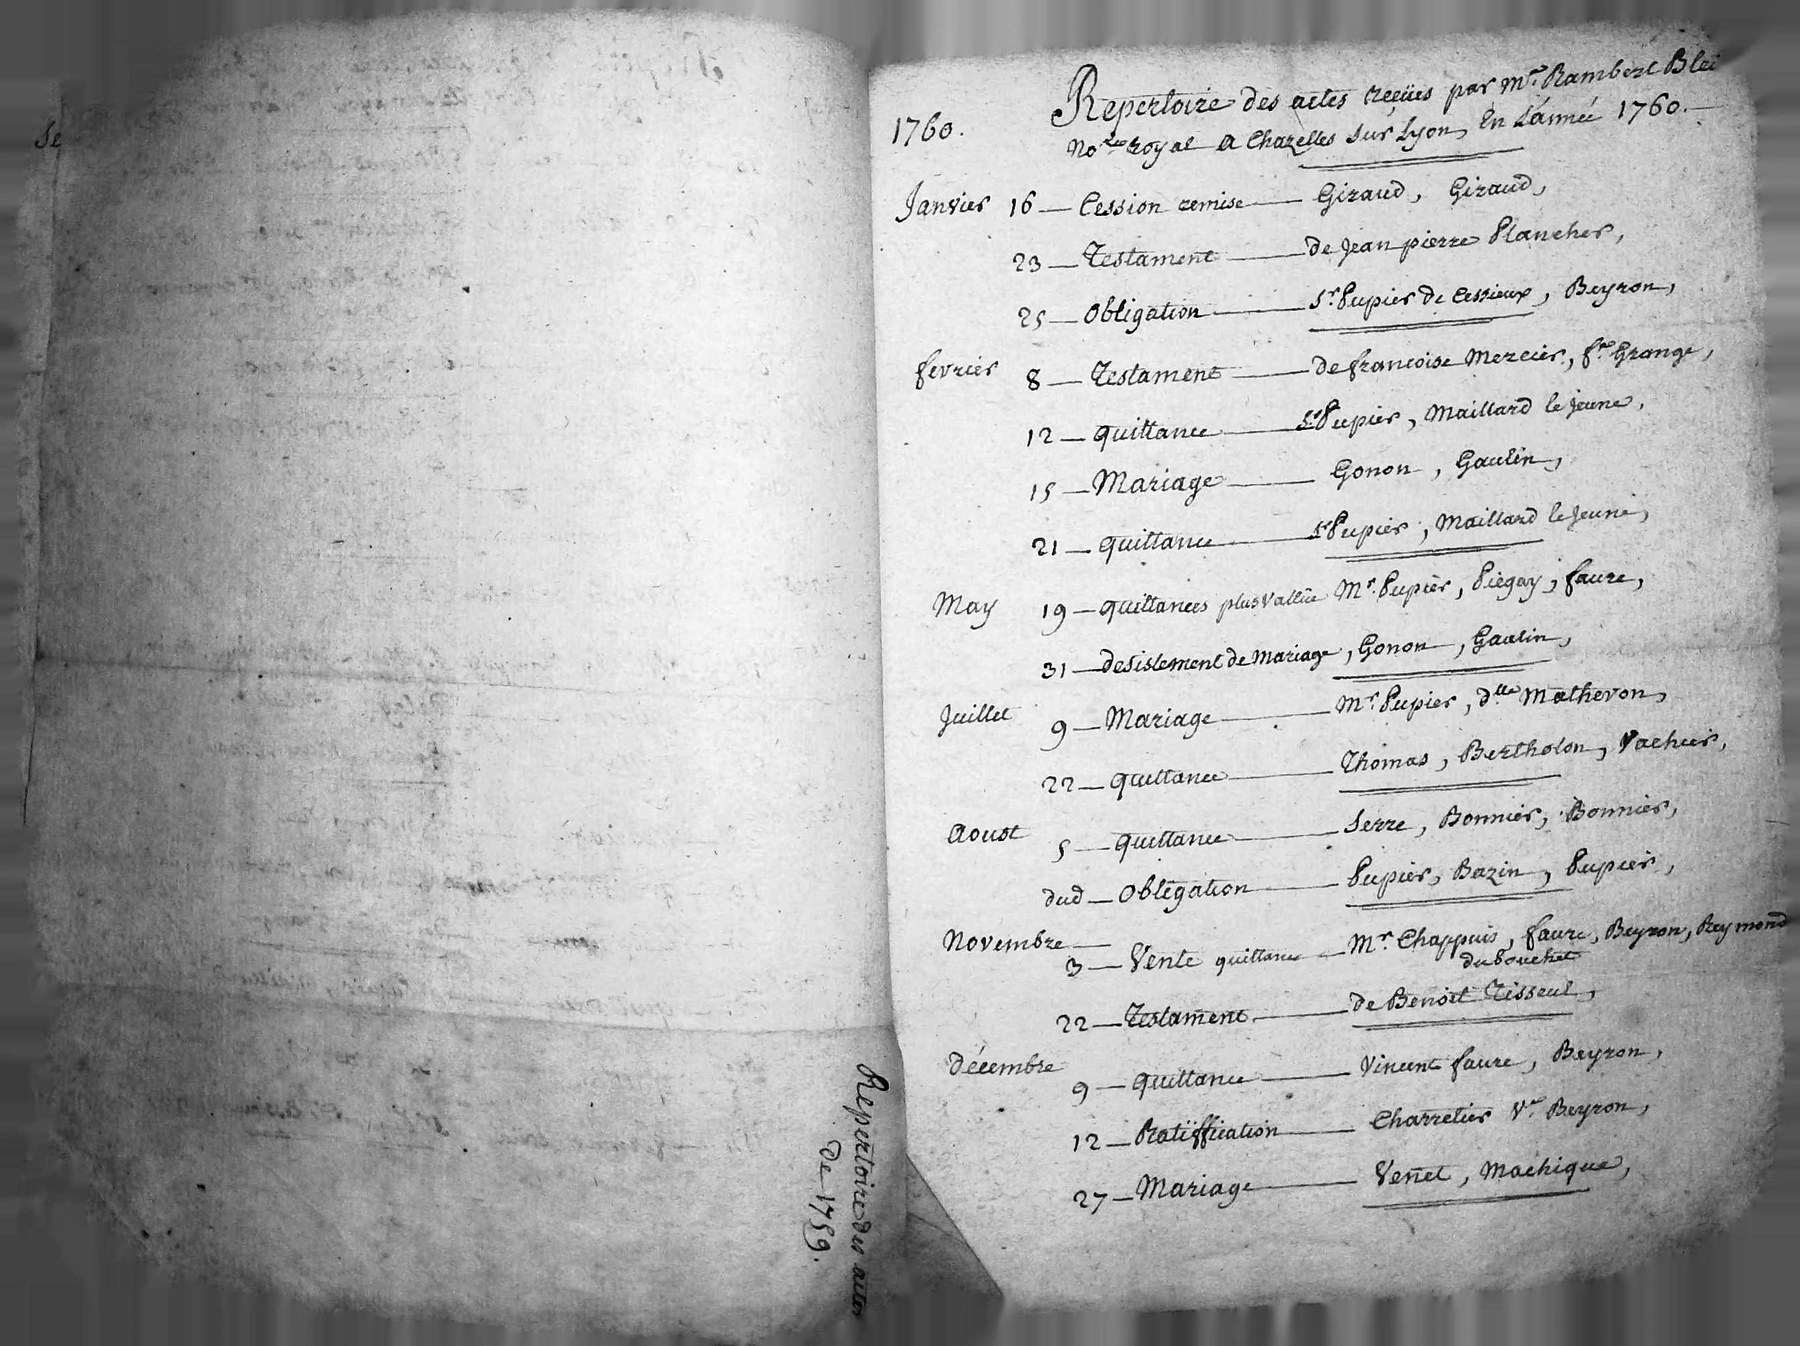 Repertoire des actes
de 1759.
1760.
Repertoire des actes reçeües par Mᵉ Rambert
Noʳᵉ royal a Chazelles sur Lyon, En L'année 1760.
Janvier 16 — Cession remise — Giraud, Giraud,
23 — Testament — de Jean pierre Plancher,
25 — Obligation — Sʳ Pupier de Cessieux, Beyron,
fevrier 8 — Testament — de francoise Mercier, fᵉ Grange,
12 — quittance — Sʳ Pupier, Maillard le jeune,
15 — Mariage — Gonon, Gaulin,
21 — quittance — Sʳ Pupier, Maillard le Jeune,
May 19 — quittances plus vallüe Mʳ Pupier, Piegay, faure,
31 — desistement de Mariage, Gonon, Gaulin,
Juillet 9 — Mariage — Mʳ Pupier, dˡˡᵉ Mathevon,
22 — quittance — Thomas, Bertholon, Vacher,
Aoust 5 — quittance — Serre, Bonnier, Bonnier,
dud — Obligation — Pupier, Bazin, Pupier,
Novembre —
3 — Vente quittance — Mʳ Chappuis, faure, Beyron, Reymond
du bouchet
22 — Testament — de Benoit Tisseur,
Décembre
9 — quittance — Vincent faure, Beyron,
12 — Ratiffication — Charretier Vᵉ Beyron,
27 — Mariage — Venet, Machique,